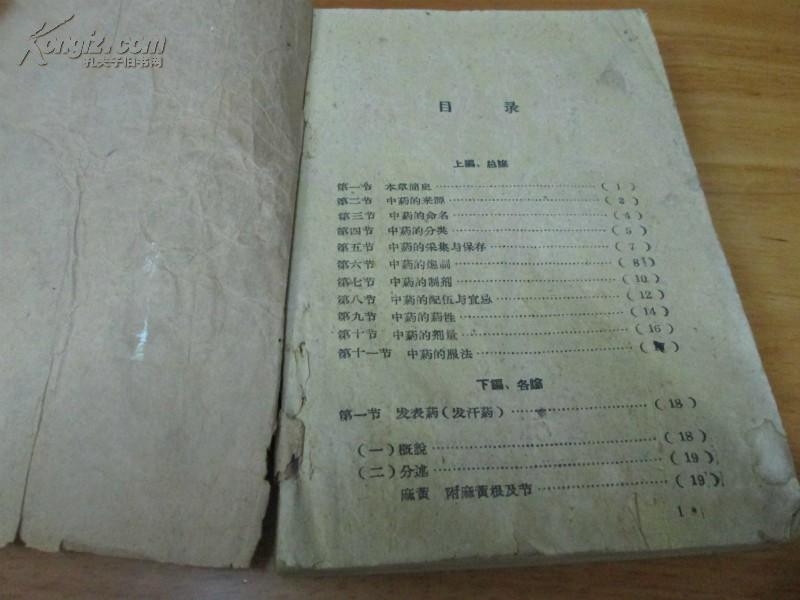 Kongfz.com
孔夫子旧书网
目 录
上編、总論
第一节 本草簡史 (1)
第二节 中葯的来源 (2)
第三节 中葯的命名 (4)
第四节 中葯的分类 (5)
第五节 中葯的采集与保存 (7)
第六节 中葯的炮制 (8)
第七节 中葯的制剂 (10)
第八节 中葯的配伍与宜忌 (12)
第九节 中葯的葯性 (14)
第十节 中葯的剂量 (16)
第十一节 中葯的服法
下編、各論
第一节 发表葯(发汗葯) (18)
(一)概說 (18)
(二)分述 (19)
麻黄 附麻黄根及节 (19)
1